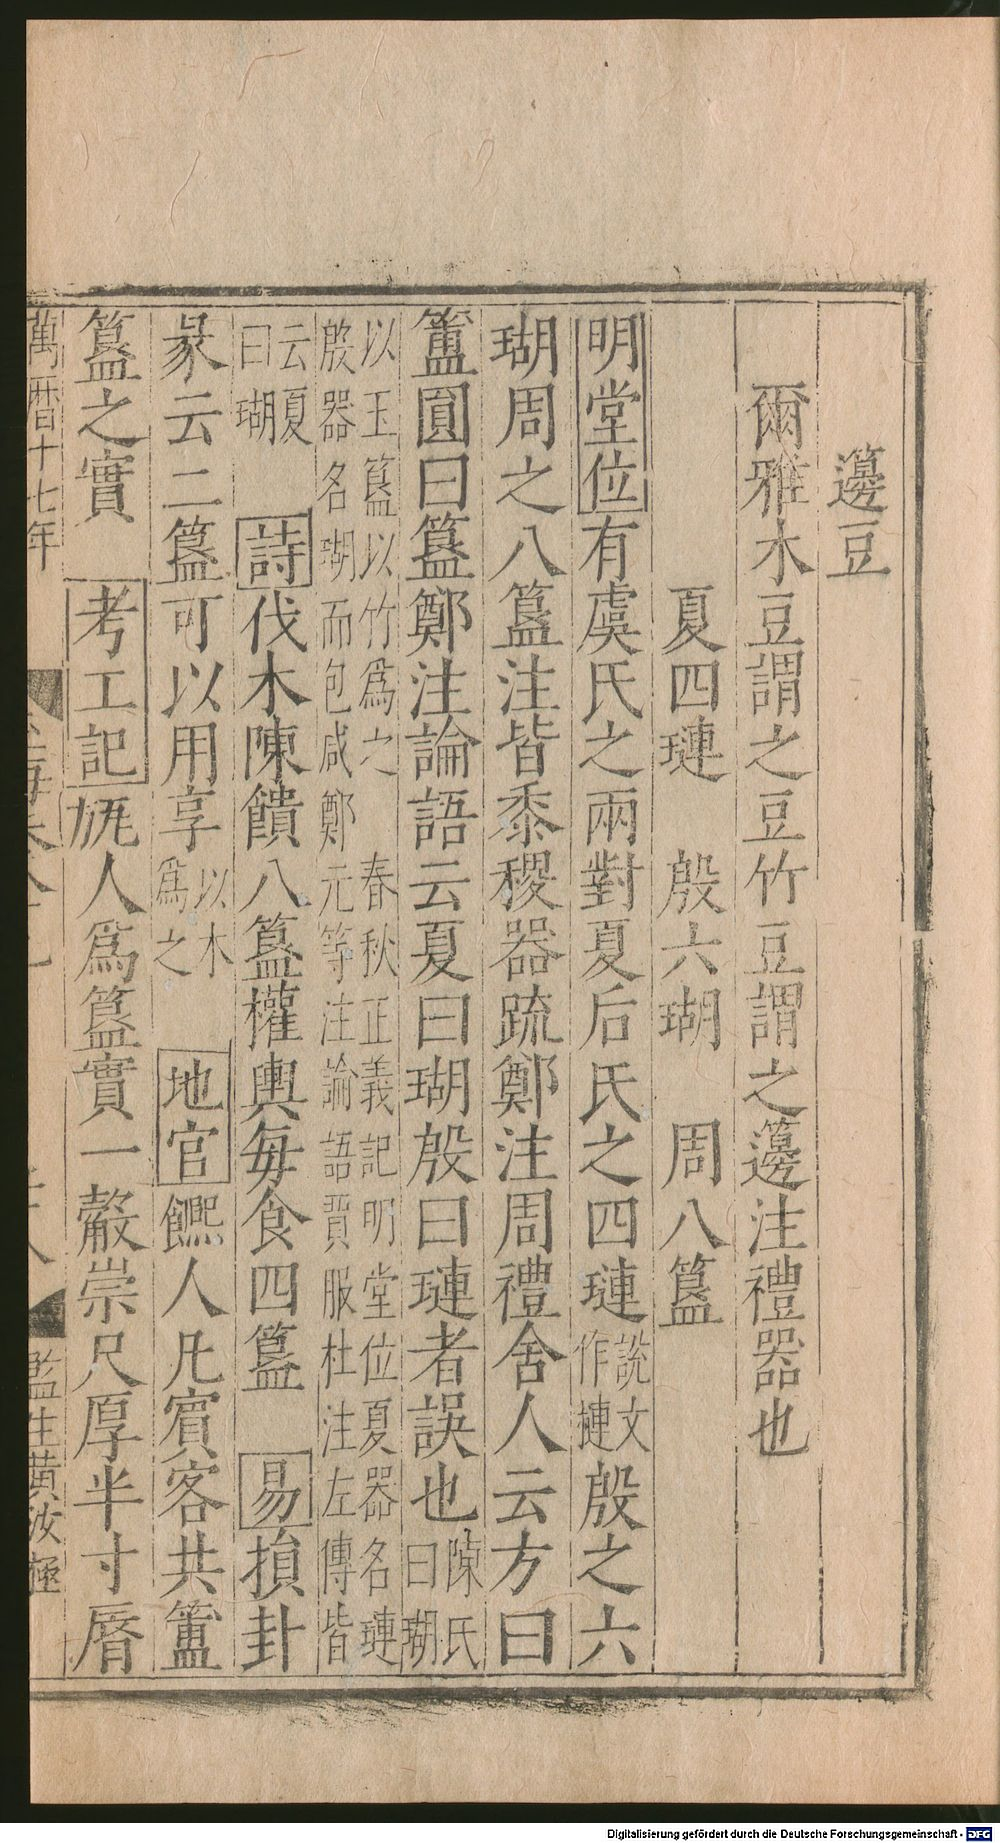 籩豆
爾雅木豆謂之豆竹豆謂之籩注禮器也
夏四璉 殷六瑚 周八簋
明堂位有虞氏之兩對夏后氏之四璉說文作槤殷之六
瑚周之八簋注皆黍稷器疏鄭注周禮舍人云方曰
簠圓曰簋鄭注論語云夏曰瑚殷曰璉者誤也陳氏曰瑚
以玉簋以竹爲之 春秋正義記明堂位夏器名璉
殷器名瑚而包咸鄭元等注論語賈服杜注左傳皆
云夏曰瑚 詩伐木陳饋八簋權輿每食四簋 易損卦
彖云二簋可以用享以木爲之 地官饎人凡賓客共簠
簋之實 考工記瓬人爲簋實一觳崇尺厚半寸脣
萬曆十七年
監生黃汝極
Digitalisierung gefördert durch die Deutsche Forschungsgemeinschaft - DFG